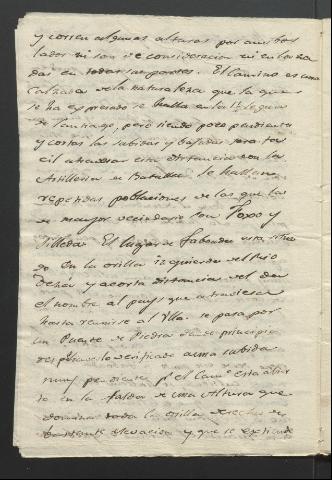 y corren algunas alturas por ambos
lados ni son de consideracion ni enlaza
das en todas sus partes. El Camino es una
Calzada de la naturaleza que la que
se ha expresado se halla en la 1ª legua
de Santiago, pero siendo poco pendientes
y cortas las subidas y bajadas sera fa
cil atravesar esta distancia con la
Artilleria en Batalla. Se hallan
repetidas poblaciones de las que la
de mayor vecindario son Toxo y
Tilleda. El lugar de está situa
do en la orilla izquierda del Rio
y a corta distancia del da
el nombre al pays que atraviesa
hasta reunirse al Ulla. Se pasa por
un Puente de Piedra dando principio
despues de verificado a una subida
muy pendiente p.r el Cam.o está abier
to en la falda de una Altura que
domina toda la orilla derecha de
bastante elevacion y que se extiende